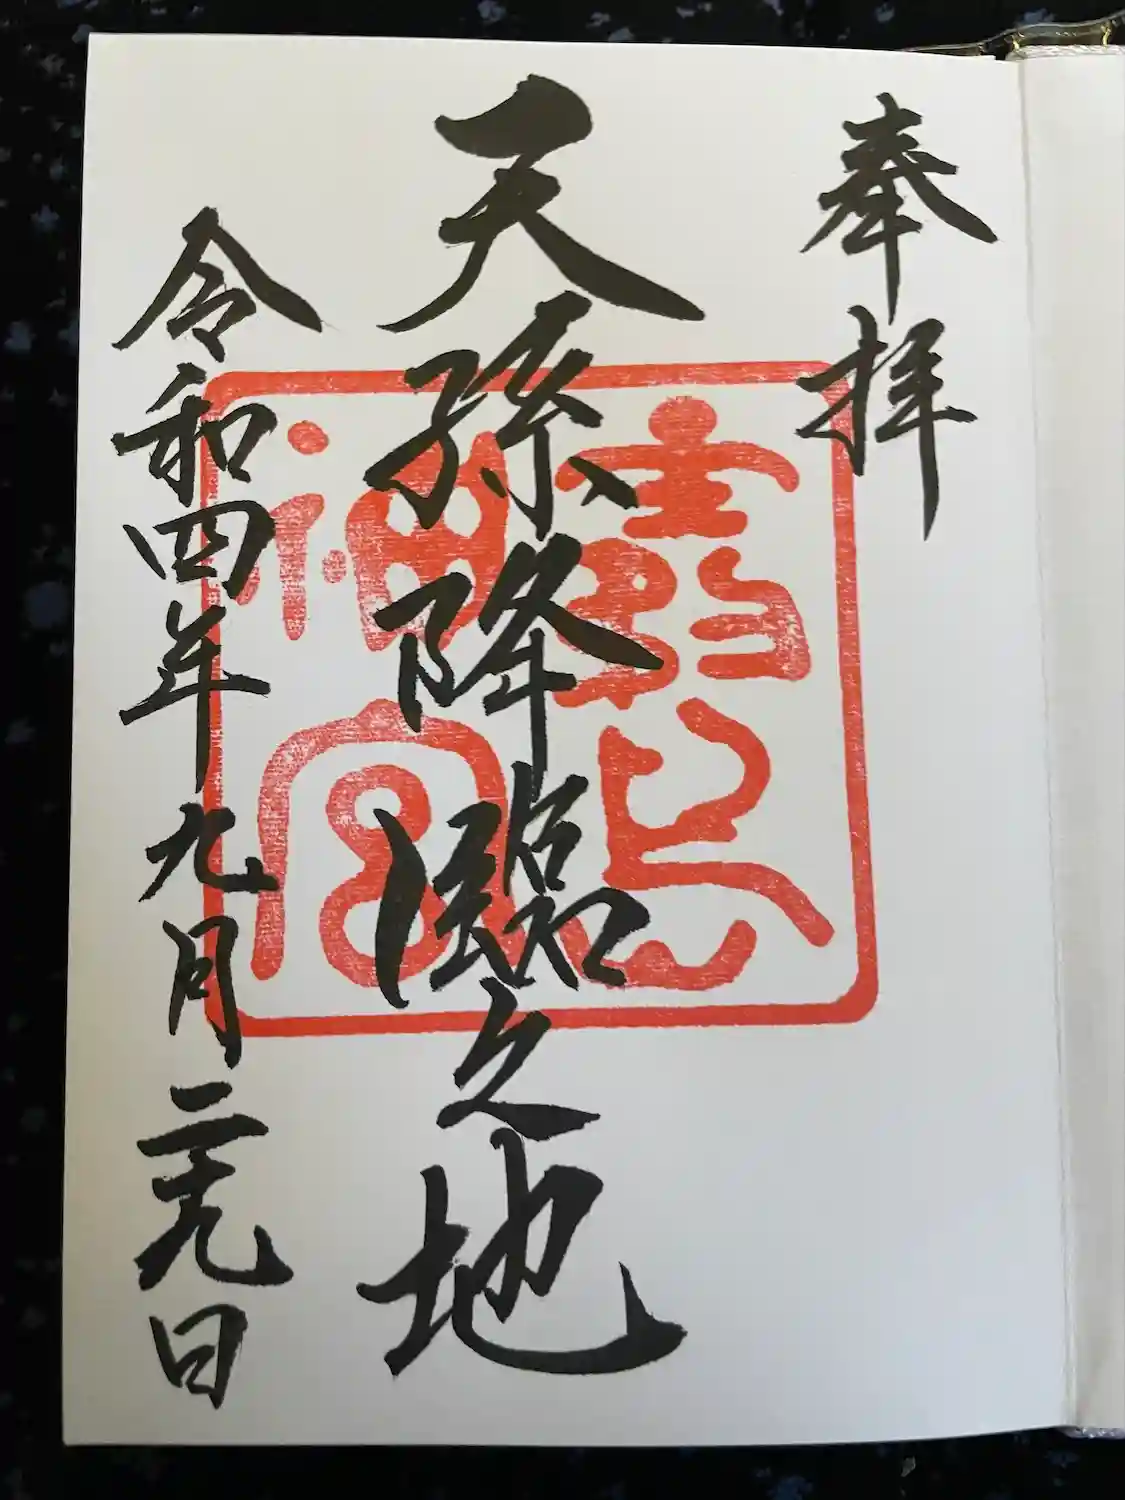 奉拝
天孫降臨之地
霧島
神宮
令和四年九月二十九日